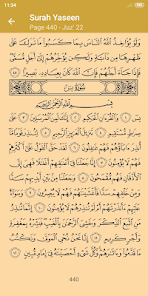 11:34
Surah Yaseen
Page 440 - Juz' 22
وَلَوْ يُؤَاخِذُ ٱللَّهُ ٱلنَّاسَ بِمَا كَسَبُوا۟ مَا تَرَكَ عَلَىٰ
ظَهْرِهَا مِن دَآبَّةٍ وَلَٰكِن يُؤَخِّرُهُمْ إِلَىٰٓ أَجَلٍ مُّسَمًّى
فَإِذَا جَآءَ أَجَلُهُمْ فَإِنَّ ٱللَّهَ كَانَ بِعِبَادِهِۦ بَصِيرًۢا ٤٥
سُورَةُ يسٓ
بِسْمِ ٱللَّهِ ٱلرَّحْمَٰنِ ٱلرَّحِيمِ
يسٓ ١ وَٱلْقُرْءَانِ ٱلْحَكِيمِ ٢ إِنَّكَ لَمِنَ ٱلْمُرْسَلِينَ ٣ عَلَىٰ
صِرَٰطٍ مُّسْتَقِيمٍ ٤ تَنزِيلَ ٱلْعَزِيزِ ٱلرَّحِيمِ ٥ لِتُنذِرَ قَوْمًا
مَّآ أُنذِرَ ءَابَآؤُهُمْ فَهُمْ غَٰفِلُونَ ٦ لَقَدْ حَقَّ ٱلْقَوْلُ عَلَىٰٓ أَكْثَرِهِمْ
فَهُمْ لَا يُؤْمِنُونَ ٧ إِنَّا جَعَلْنَا فِىٓ أَعْنَٰقِهِمْ أَغْلَٰلًا فَهِىَ إِلَى
ٱلْأَذْقَانِ فَهُم مُّقْمَحُونَ ٨ وَجَعَلْنَا مِنۢ بَيْنِ أَيْدِيهِمْ سَدًّا
وَمِنْ خَلْفِهِمْ سَدًّا فَأَغْشَيْنَٰهُمْ فَهُمْ لَا يُبْصِرُونَ ٩
وَسَوَآءٌ عَلَيْهِمْ ءَأَنذَرْتَهُمْ أَمْ لَمْ تُنذِرْهُمْ لَا يُؤْمِنُونَ ١٠ إِنَّمَا تُنذِرُ
مَنِ ٱتَّبَعَ ٱلذِّكْرَ وَخَشِىَ ٱلرَّحْمَٰنَ بِٱلْغَيْبِ فَبَشِّرْهُ بِمَغْفِرَةٍ
وَأَجْرٍ كَرِيمٍ ١١ إِنَّا نَحْنُ نُحْىِ ٱلْمَوْتَىٰ وَنَكْتُبُ
مَا قَدَّمُوا۟ وَءَاثَٰرَهُمْ وَكُلَّ شَىْءٍ أَحْصَيْنَٰهُ فِىٓ إِمَامٍ مُّبِينٍ ١٢
440